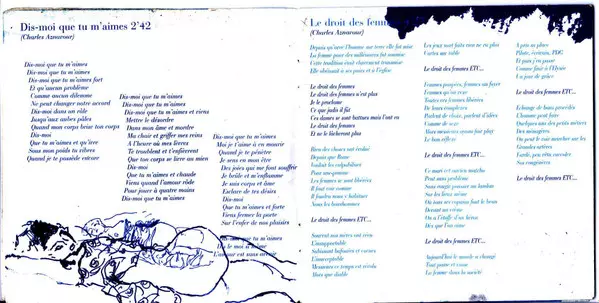 Dis-moi que tu m'aimes 2'42
(Charles Aznavour)
Dis-moi
Dis-moi que tu m'aimes
Dis-moi que tu m'aimes fort
Et qu'aucun problème
Comme aucun dilemme
Ne peut changer notre accord
Dis-moi dans un râle
Jusqu'aux aubes pâles
Quand mon corps brise ton corps
Dis-moi
Que tu m'aimes et qu'ivre
Sous mon poids tu chires
Quand je te possède encore
Dis-moi que tu m'aimes
Dis-moi que tu m'aimes
Dis-moi que tu m'aimes et viens
Mettre le désordre
Dans mon âme et mordre
Ma chair et griffer mes reins
A l'heure où mes lèvres
Te troublent et t'enfièvrent
Que ton corps se livre au mien
Dis-moi
Que tu m'aimes et chaude
Viens quand l'amour rôde
Pour jouer à quatre mains
Dis-moi que tu m'aimes
Dis-moi
Dis-moi que tu m'aimes
Moi je t'aime à en mourir
Quand je te pénètre
Je sens en mon être
Des joies qui me font souffrir
Je brûle et m'enflamme
Je suis corps et âme
Esclave de tes désirs
Dis-moi
Que tu m'aimes et forte
Viens fermer la porte
Sur l'enfer de nos plaisirs
L'amour est sans
Le droit des femmes
(Charles Aznavour)
Depuis qu'avec l'homme sur terre elle fut mise
La femme pour des millénaires fut soumise
Cette tradition était clairement transmise
Elle obéissait à ses pairs et à l'église
Le droit des femmes
Le droit des femmes n'est plus
Je le proclame
Ce que jadis il fut
Ces dames se sont battues mais l'ont eu
Le droit des femmes
Et ne le lâcheront plus
Bien des choses ont évolué
Depuis que Rome
Voulait les culpabiliser
Pour une pomme
Les femmes se sont libérées
Il faut voir comme
Il faudra nous y habituer
Nous les bonshommes
Le droit des femmes ETC...
Souvent nos mères ont vécu
L'insupportable
Subissant bafouées et cocues
L'inacceptable
Mentones ce temps est révolu
Hors que diable
Les jeux sont faits rien ne va plus
Cartes sur table
Le droit des femmes ETC...
Femmes poupées, femmes au foyer
Femmes qu'on sexe
Toutes ces femmes libérées
De leurs complexes
Parlent de choix, parlent d'idées
Comme de sexe
Mars messieurs ayons fair-play
Le bon réflexe
Le droit des femmes ETC...
Ce mari est ancien macho
Peut sans problème
Sous rouge pousser un landau
Sur les lieux même
Où tous ses copains font le beau
Devant un crème
On a l'étoffe d'un héros
Dès que l'on aime
Le droit des femmes ETC...
Aujourd'hui le monde a changé
Tout passe et casse
La femme dans la société
A pris sa place
Pilote, écrivain, PDG
Et puis j'en passe
Comme finir à l'Elysée
Un jour de grâce
Le droit des femmes ETC...
Echange de bons procédés
L'homme peut faire
Quelques uns des petits métiers
Des ménagères
On peut le voir marcher sur les
Grandes artères
Fardé, peu être onéodor
Ses couperoses
Le droit des femmes ETC...